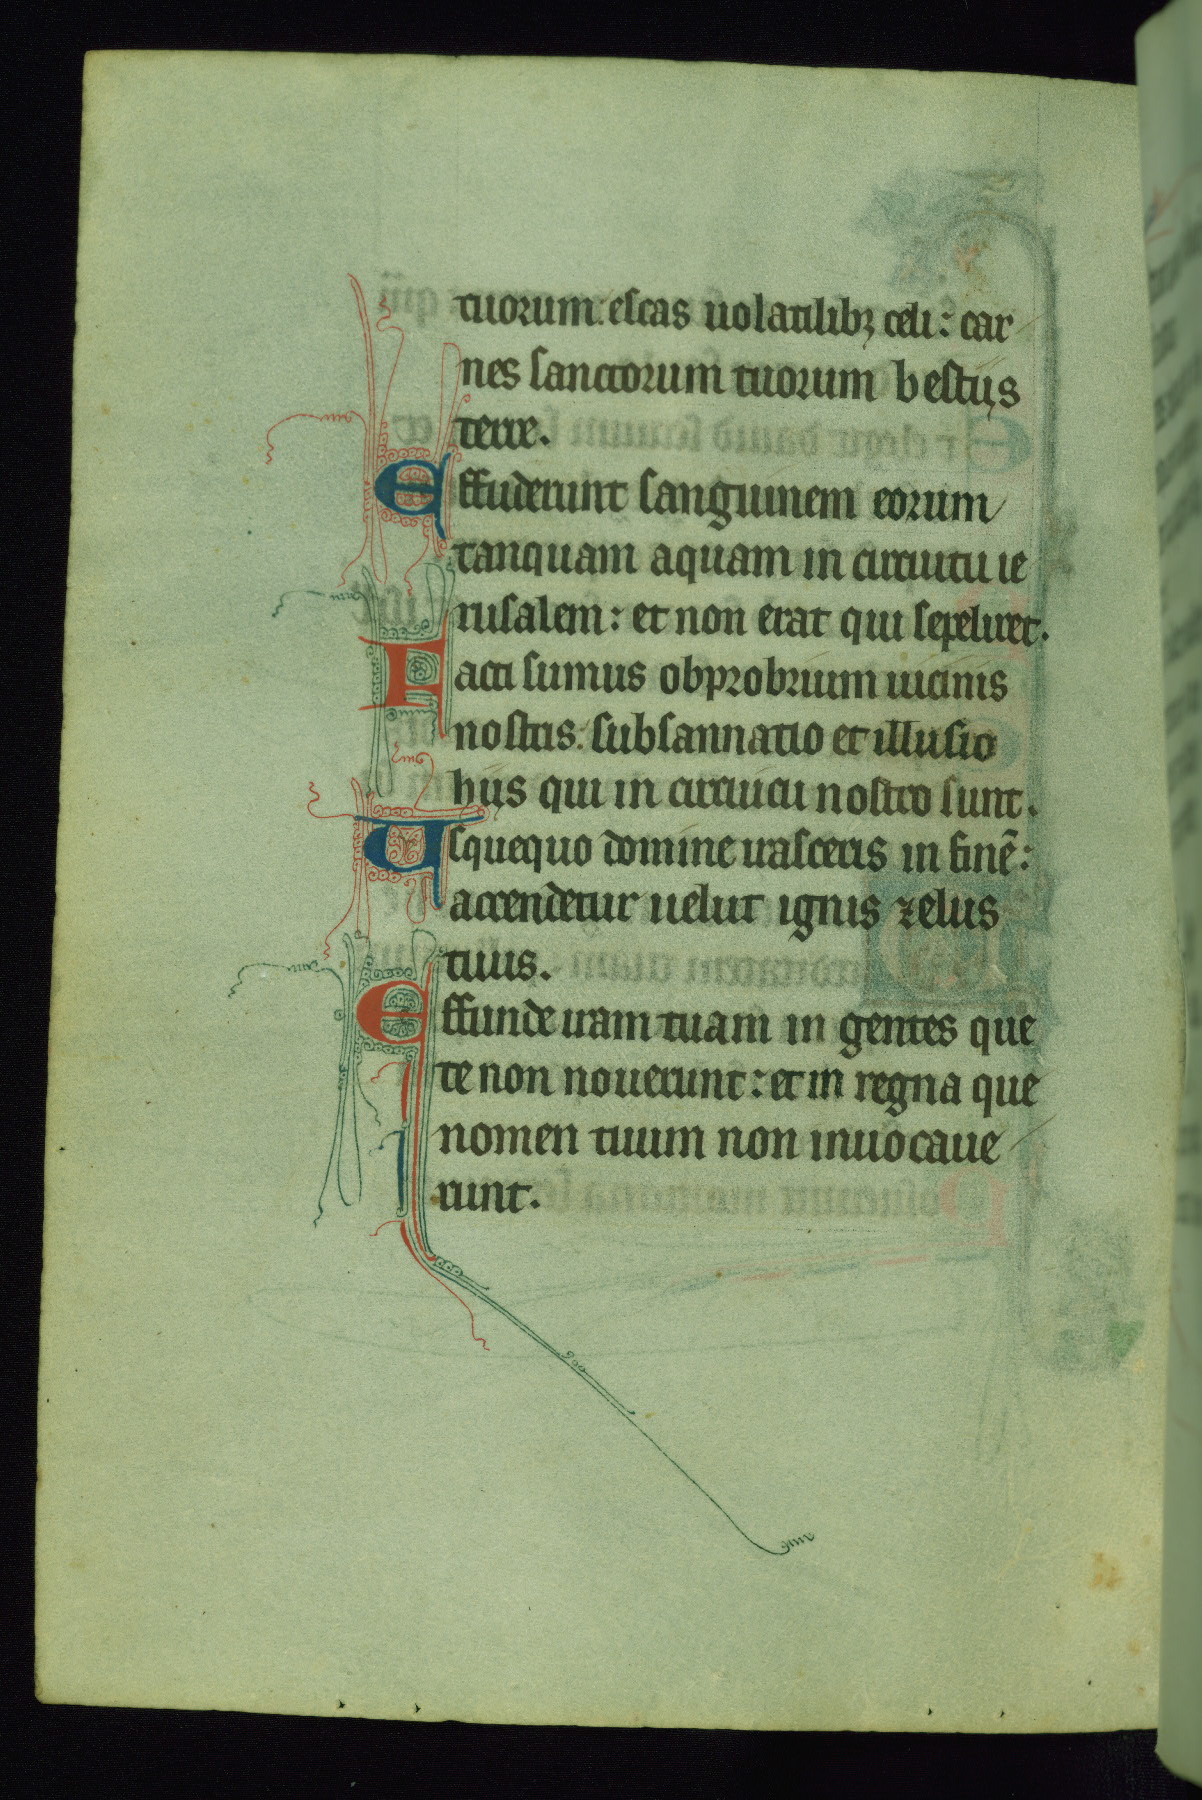 tuorum. escas uolatilibꝫ celi: car
nes sanctorum tuorum bestijs
terre.
Effuderunt sanguinem eorum
tanquam aquam in circuitu ie
rusalem: et non erat qui sepeliret.
Facti sumus obprobrium uicinis
nostris. subsannatio et illusio
hijs qui in circuitu nostro sunt.
Usquequo domine irasceris in finē:
accendetur uelut ignis zelus
tuus.
Effunde iram tuam in gentes que
te non nouerunt: et in regna que
nomen tuum non inuocaue
runt.